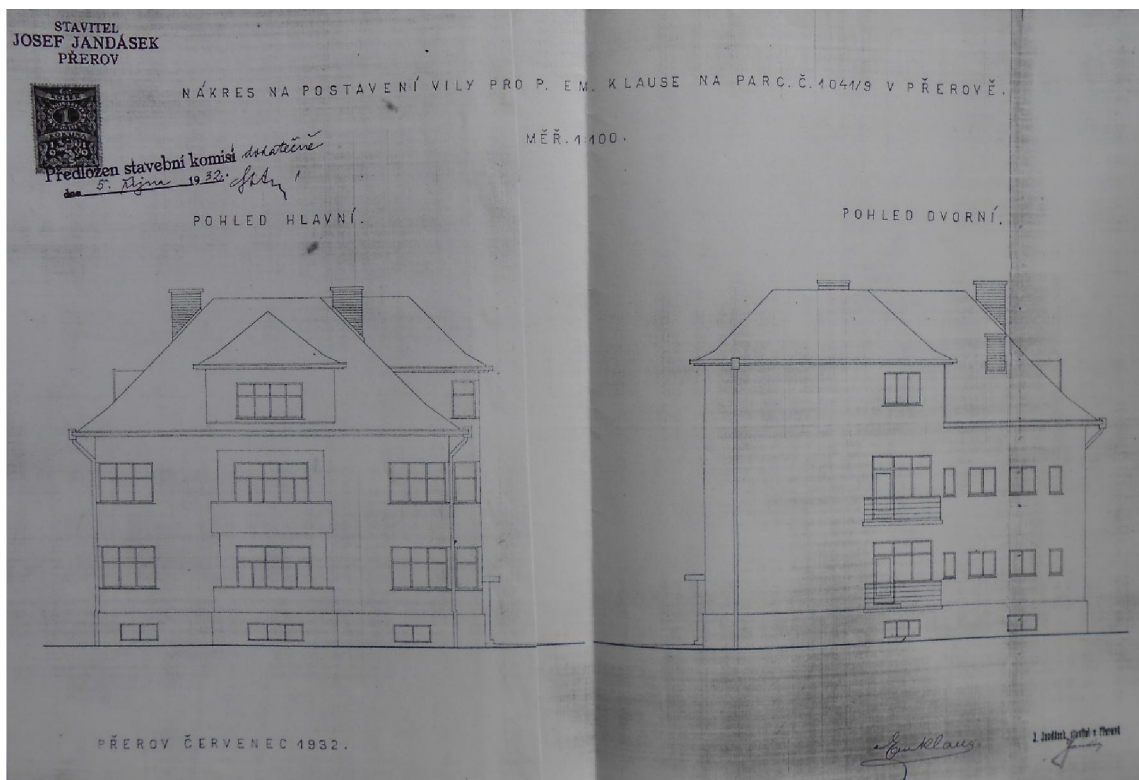 STAVITEL
JOSEF JANDÁSEK
PŘEROV
NÁKRES NA POSTAVENÍ VILY PRO P. EM. KLAUSE NA PARC. Č. 1041/9 V PŘEROVĚ.
MĚŘ. 1:100.
1
Předložen stavební komisi dodatečně
dne 5. října 1932.
POHLED HLAVNÍ.
POHLED DVORNÍ.
PŘEROV ČERVENEC 1932.
Em Klaus.
J. Jandásek, stavitel v Přerově